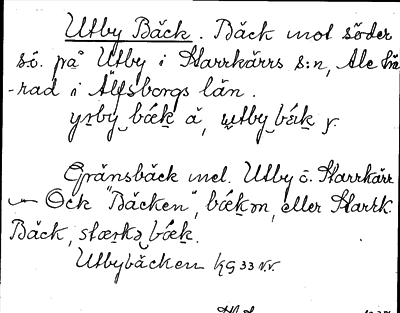 Utby Bäck. Bäck mot söder
sö. på Utby i Starrkärrs s:n, Ale hä-
-rad i Älfsborgs län.
Gränsbäck mel. Utby o. Starrkärr
Ock "Bäcken", bǽkən, eller Starrk.
Bäck, stærkə bǽk.
Utbybäcken KG 33 N.V.